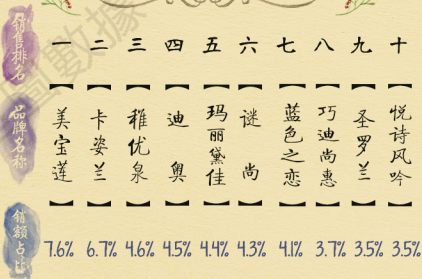 销售排名 一 二 三 四 五 六 七 八 九 十
品牌名称 美宝莲 卡姿兰 稚优泉 迪奥 玛丽黛佳 谜尚 蓝色之恋 巧迪尚惠 圣罗兰 悦诗风吟
销额占比 7.6% 6.7% 4.6% 4.5% 4.4% 4.3% 4.1% 3.7% 3.5% 3.5%
數據